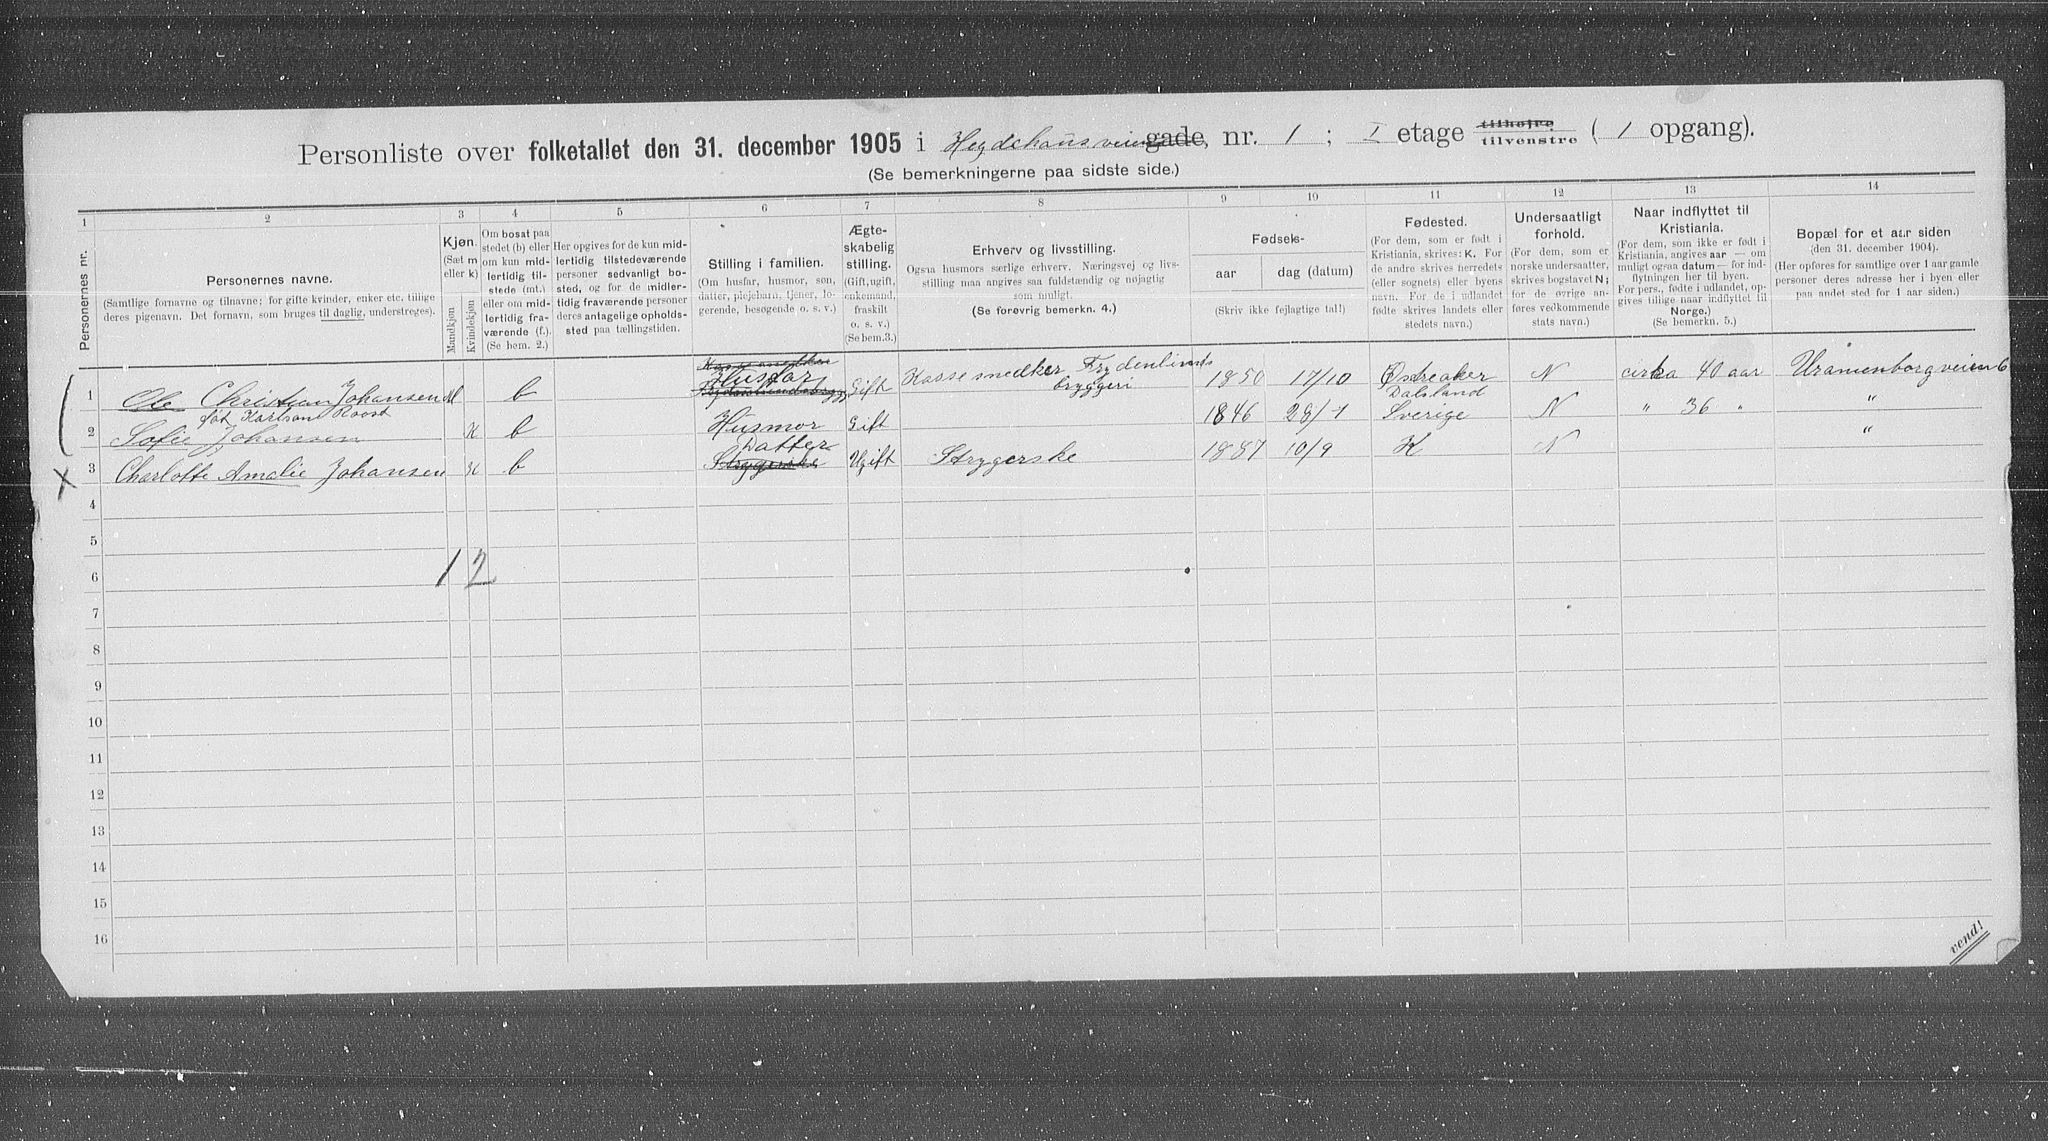 Personliste over folketallet den 31. december 1905 i Hegdehaugsveien gade, nr. 1 ; I etage tilhøjre tilvenstre ( 1 opgang).
(Se bemerkningerne paa sidste side.)
1 2 3 4 5 6 7 8 9 10 11 12 13 14
Personernes nr.
Personernes navne.
(Samtlige fornavne og tilnavne; for gifte kvinder, enker etc. tillige
deres pigenavn. Det fornavn, som bruges til daglig, understreges).
Kjøn.
(Sæt m
eller k)
Mandkjøn
Kvindekjøn
Om bosat paa
stedet (b) eller
om kun mid-
lertidig til-
stede (mt.)
eller om mid-
lertidig fra-
værende (f.).
(Se bem. 2.)
Her opgives for de kun mid-
lertidig tilstedeværende
personer sedvanligt bo-
sted, og for de midler-
tidig fraværende personer
deres antagelige opholds-
sted paa tællingstiden.
Stilling i familien.
(Om husfar, husmor, søn,
datter, plejebarn, tjener, lo-
gerende, besøgende o. s. v.)
Ægte-
skabelig
stilling.
(Gift, ugift,
enkemand,
fraskilt
o. s. v.)
(Se bem.3.)
Erhverv og livsstilling.
Ogsaa husmors særlige erhverv. Næringsvej og livs-
stilling maa angives saa fuldstændig og nøjagtig
som muligt.
(Se forøvrig bemerkn. 4.)
Fødsels-
aar dag (datum)
(Skriv ikke fejlagtige tal!)
Fødested.
(For dem, som er født i
Kristiania, skrives: K. For
de andre skrives herredets
(eller sognets) eller byens
navn. For de i udlandet
fødte skrives landets eller
stedets navn.)
Undersaatligt
forhold.
(For dem, som er
norske undersaatter,
skrives bogstavet N;
for de øvrige an-
føres vedkommende
stats navn.)
Naar indflyttet til
Kristiania.
(For dem, som ikke er født i
Kristiania, angives aar — om
muligt ogsaa datum — for ind-
flytningen her til byen.
For pers., fødte i udlandet, op-
gives tillige naar indflyttet til
Norge.)
(Se bemerkn. 5.)
Bopæl for et aar siden
(den 31. december 1904).
(Her opføres for samtlige over 1 aar gamle
personer deres adresse her i byen eller
paa andet sted for 1 aar siden.)
Kassesnedker
1 Ole Christian Johansen M b Husfar Gift Kassesnedker Frydenlunds bryggeri 1850 17/10 Østreaker N cirka 40 aar Uranienborgveien 6
født Karlson Roost Dalsland
2 Sofie Johansen K b Husmor Gift 1846 29/7 Sverige N " 36 " "
Datter
3 Charlotte Amalie Johansen K b Strygerske Ugift Strygerske 1887 10/9 K N "
4
5
1 2
6
7
8
9
10
11
12
13
14
15
16
vend!